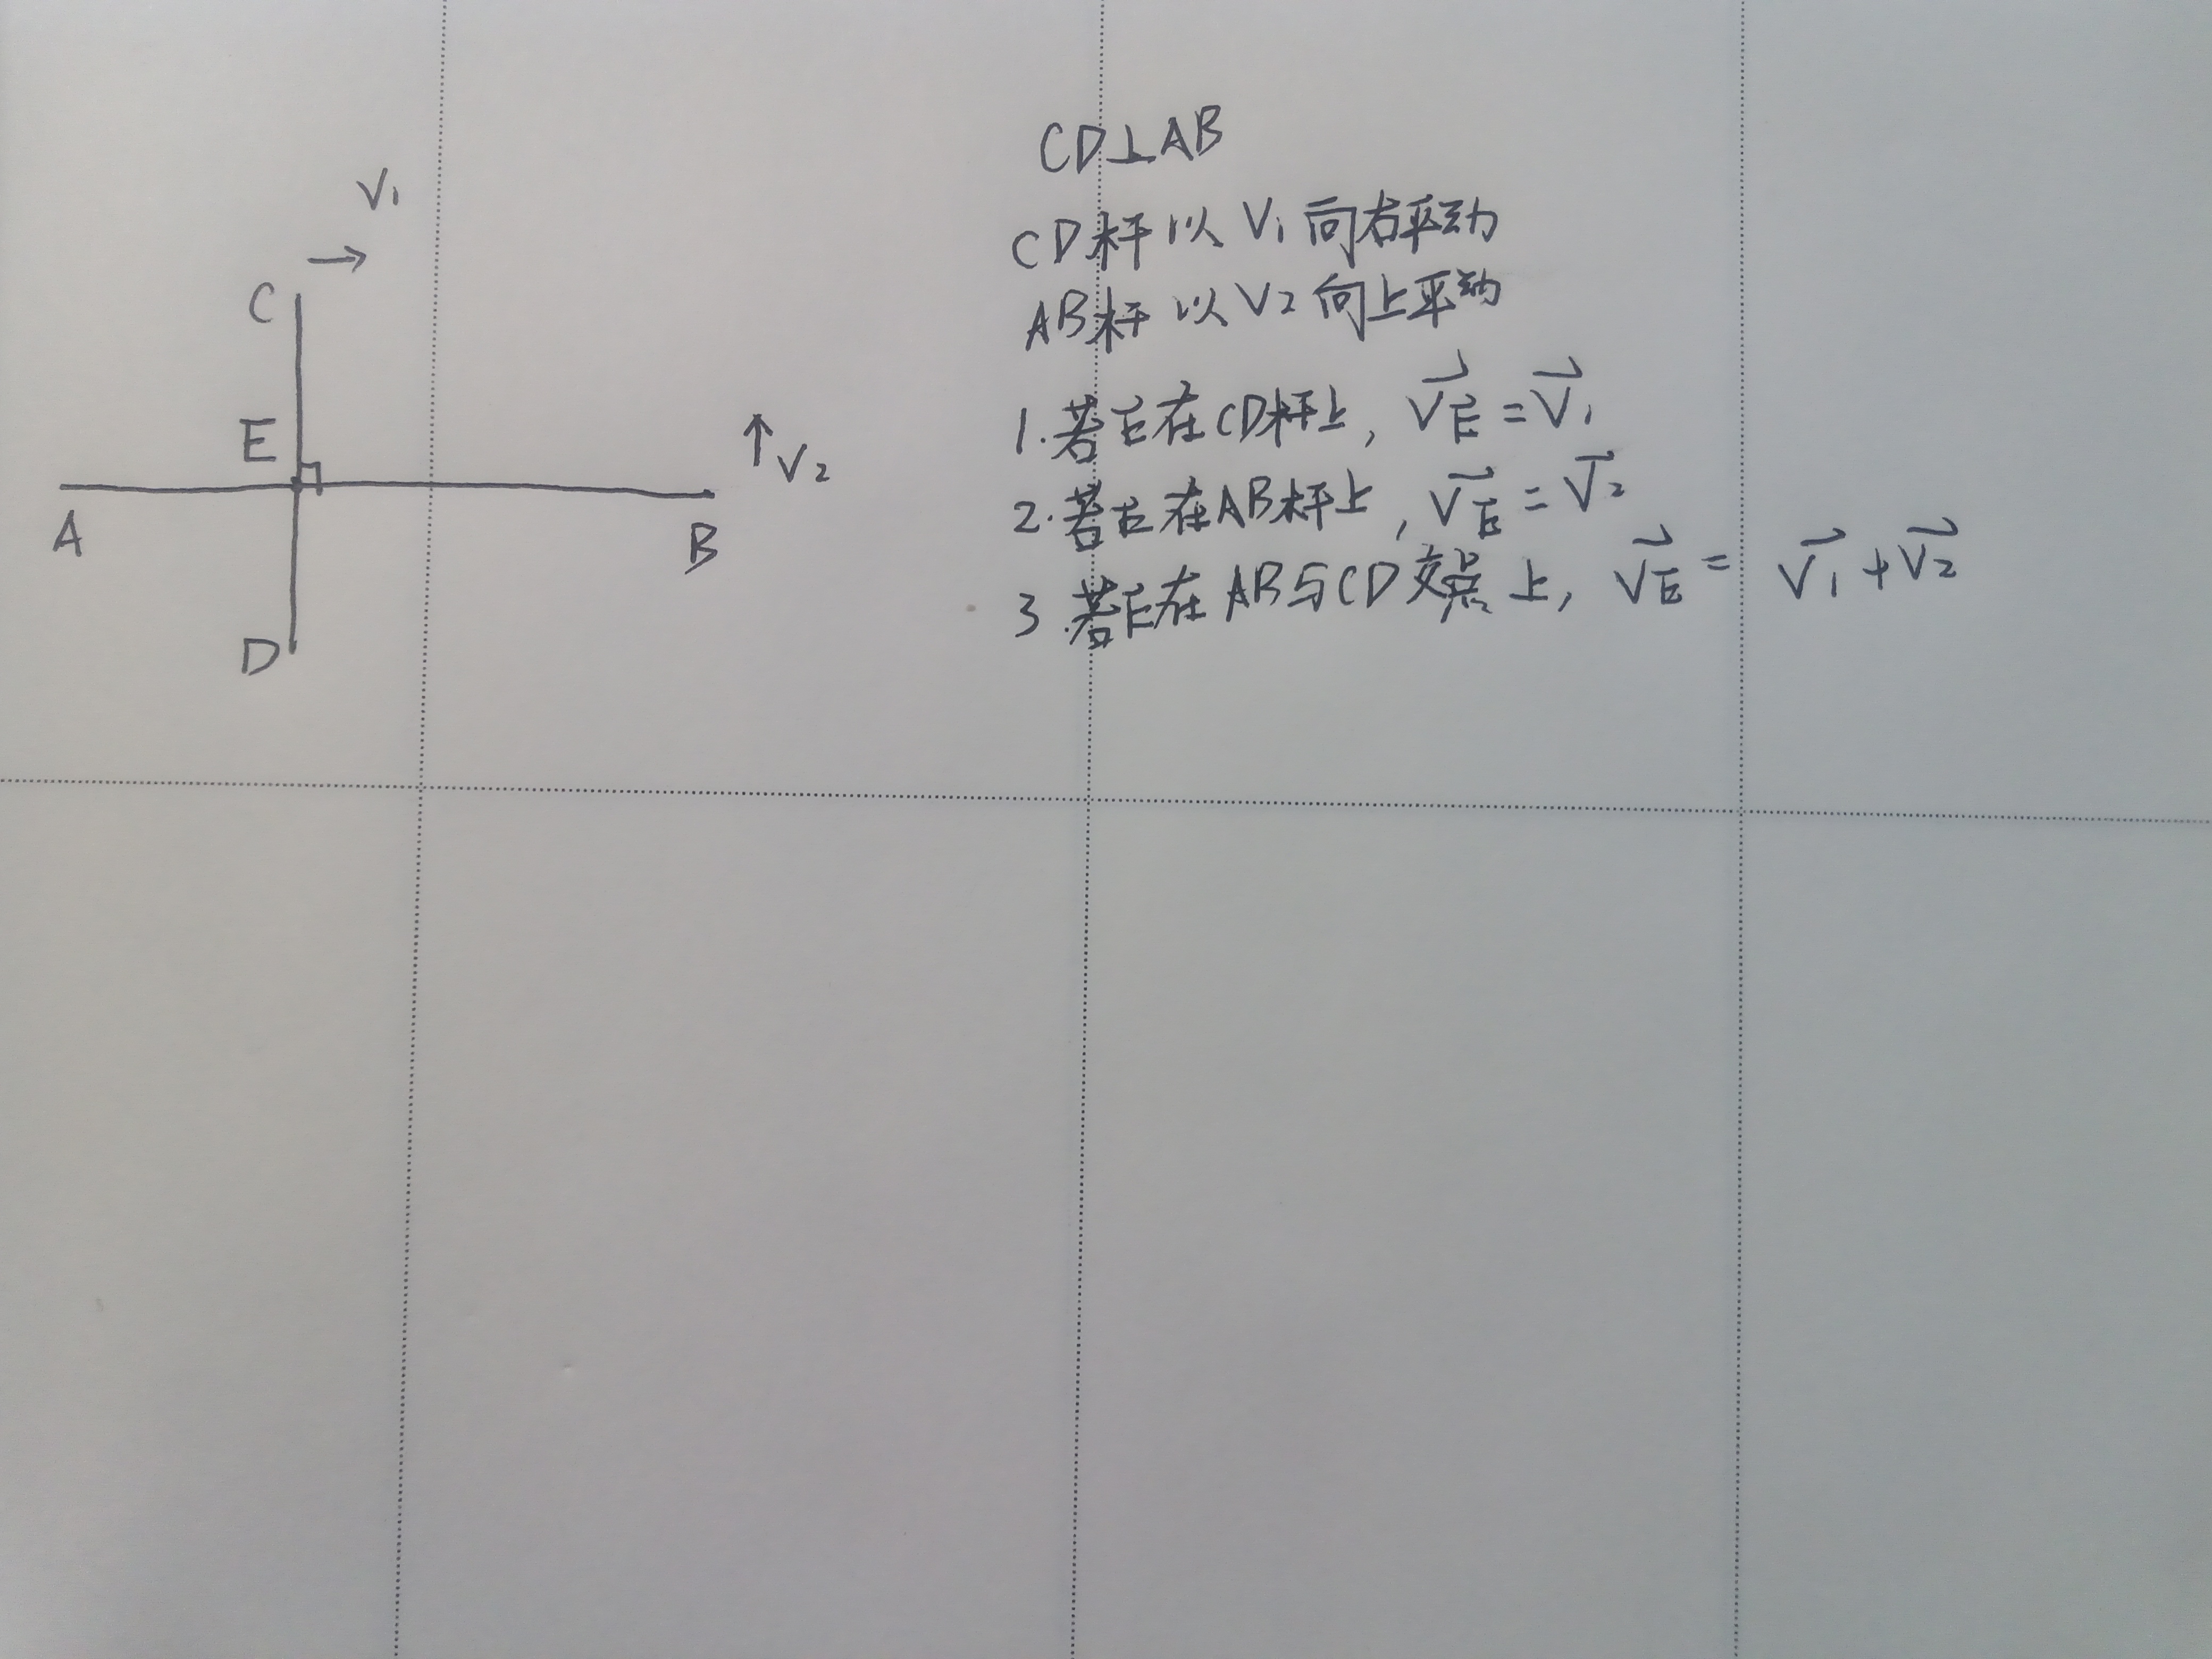 V₁
C
E
V₂
A
B
D
CD⊥AB
CD杆以V₁向右平动
AB杆以V₂向上平动
1.若E在CD杆上，V⃗E=V⃗₁
2.若E在AB杆上，V⃗E=V⃗₂
3.若E在AB与CD交点上，V⃗E=V⃗₁+V⃗₂